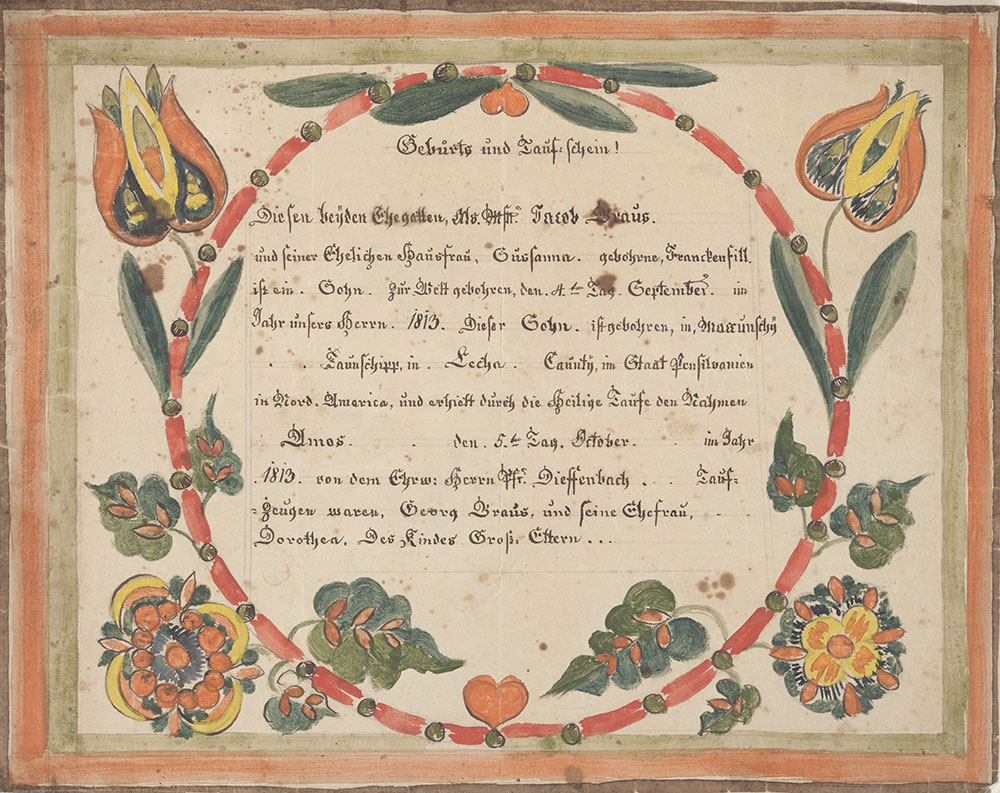 Geburts und Tauf-schein!
Diesen beyden Ehegatten, Als. Jacob Braus.
und seiner Ehelichen Hausfrau, Sussanna. gebohrne, Franckenfill.
ist ein. Sohn. Zur Welt gebohren, den. 4.ter Tag. September. im
Jahr unsers Herrn. 1813. Dieser Sohn. ist gebohren, in, Maxunschÿ
. . Taunschipp, in. Lecha. Caunty, im Staat Pensilvanien
in Nord. America, und erhielt durch die Heilige Taufe den Nahmen
. Amos. . den. 5.ter Tag. October. . im Jahr
1813. von dem Ehrw: Herrn Pfr. Dieffenbach . . . Tauf-
-Zeugen waren, Georg Braus, und seine Ehefrau,
Dorothea. Des Kindes Groß. Eltern . . .